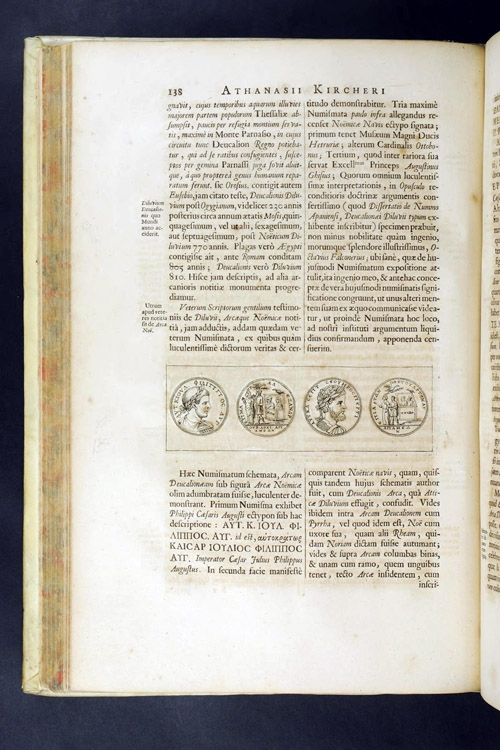 138 ATHANASII KIRCHERI
gnavit, cujus temporibus aquarum illuvies
majorem partem populorum Thessaliæ ab-
sumpsit, paucis per refugia montium serva-
tis, maximè in Monte Parnaso, in cujus
circuitu tunc Deucalion Regno potieba-
tur, qui ad se ratibus confugientes, suscep-
tos per gemina Parnassi juga fovit aluit-
que, à quo propterea genus humanum repa-
ratum ferunt. sic Orosius. contigit autem
Eusebio, jam citato teste, Deucalionis Dilu-
vium post Ogygianum, videlicet 230 annis
posterius circa annum ætatis Mosis, quin-
quagesimum, vel ut alii, sexagesimum,
aut septuagesimum, post Noëticum Di-
luvium 770 annis. Plagas verò Ægypti
contigisse ait, ante Romam conditam
805 annis; Deucalionis verò Diluvium
810. Hisce jam descriptis, ad alia ar-
canioris notitiæ monumenta progre-
diamur.
Veterum Scriptorum gentilium testimo-
niis de Diluvii, Arcæque Noëmicæ noti-
tiâ, jam adductis, addam quædam ve-
terum Numismata, ex quibus quàm
luculentissimè dictorum veritas & cer-
Diluvium
Deucalio-
nis quo
Mundi
anno ac-
ciderit.
Utrum
apud vete-
res notitia
sit de Arca
Noë.
titudo demonstrabitur. Tria maximè
Numismata paulo infra allegandus re-
censet Noëmicæ Navis ectypo signata;
primum tenet Musæum Magni Ducis
Hetruriæ; alterum Cardinalis Ottobo-
nus; Tertium, quod inter rariora sua
servat Excellmus Princeps Augustinus
Ghisius; Quorum omnium luculentis-
simæ interpretationis, in Opusculo re-
conditioris doctrinæ argumentis con-
fertissimo (quod Dissertatio de Nummo
Apamensi, Deucalionei Diluvii typum ex-
hibente inscribitur) specimen præbuit,
non minus nobilitate quàm ingenio,
morumque splendore illustrissimus, O-
ctavius Falconerius, ubi sanè, quæ de hu-
jusmodi Numismatum expositione at-
tulit, ita ingenio meo, & antehac conce-
ptæ de vera hujusmodi numismatis signi-
ficatione congruunt, ut unus alteri men-
tem suam ex æquo communicasse videa-
tur, ut proinde Numismata hoc loco,
ad nostri instituti argumentum liqui-
dius confirmandum, apponenda cen-
suerim.
Hæc Numismatum schemata, Arcam
Deucalionæam sub figurâ Arcæ Noëmicæ
olim adumbratam fuisse, luculenter de-
monstrant. Primum Numisma exhibet
Philippi Cæsaris Augusti ectypon sub hac
descriptione : ΑΥΤ. Κ. ΙΟΥΛ. ΦΙ-
ΛΙΠΠΟΣ. ΑΥΓ. id est, αὐτοκράτως
ΚΑΙΣΑΡ ΙΟΥΛΙΟΣ ΦΙΛΙΠΠΟΣ
ΑΥΓ. Imperator Cæsar Julius Philippus
Augustus. In secunda facie manifestè
comparent Noëticæ navis, quam, quis-
quis tandem hujus schematis author
fuit, cum Deucalionis Arca, quâ Atti-
cæ Diluvium effugit, confudit. Vides
ibidem intra Arcam Deucalionem cum
Pyrrha, vel quod idem est, Noë cum
uxore sua, quam alii Rheam, qui-
dam Noriam dictam fuisse autumant;
vides & supra Arcam columbas binas,
& unam cum ramo, quem unguibus
tenet, tecto Arcæ insidentem, cum
inscri-